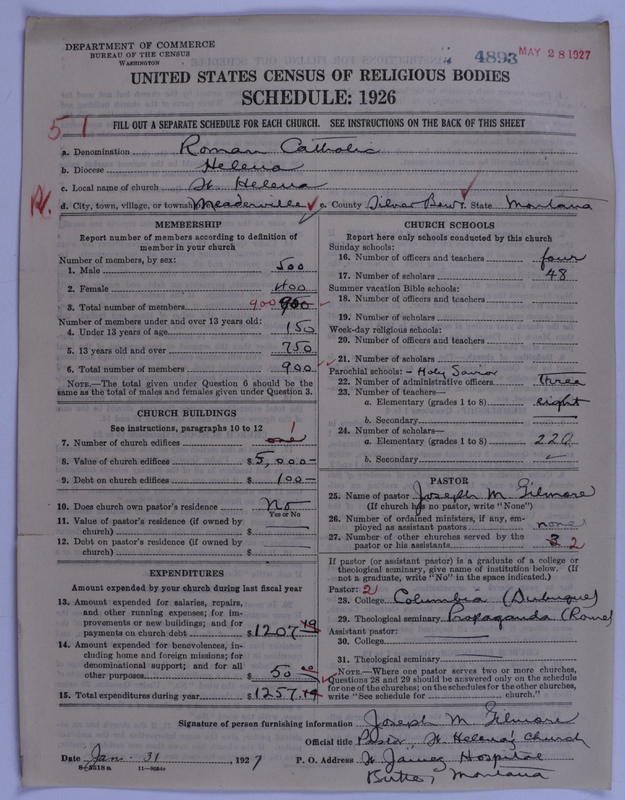 DEPARTMENT OF COMMERCE
BUREAU OF THE CENSUS
WASHINGTON
4893 MAY 28 1927
UNITED STATES CENSUS OF RELIGIOUS BODIES
SCHEDULE: 1926
51
FILL OUT A SEPARATE SCHEDULE FOR EACH CHURCH. SEE INSTRUCTIONS ON THE BACK OF THIS SHEET
a. Denomination Roman Catholic
b. Diocese Helena
c. Local name of church St. Helena
d. City, town, village, or township Meaderville e. County Silver Bow f. State Montana
MEMBERSHIP
Report number of members according to definition of
member in your church
Number of members, by sex:
1. Male 500
2. Female 400
3. Total number of members 900 900
Number of members under and over 13 years old:
4. Under 13 years of age 150
5. 13 years old and over 750
6. Total number of members 900
NOTE.—The total given under Question 6 should be the
same as the total of males and females given under Question 3.
CHURCH BUILDINGS
See instructions, paragraphs 10 to 12
7. Number of church edifices one 1
8. Value of church edifices $ 5,000—
9. Debt on church edifices $ 100—
10. Does church own pastor's residence No
Yes or No
11. Value of pastor's residence (if owned by
church) $
12. Debt on pastor's residence (if owned by
church) $
EXPENDITURES
Amount expended by your church during last fiscal year
13. Amount expended for salaries, repairs,
and other running expenses; for im-
provements or new buildings; and for
payments on church debt $ 1207 49
14. Amount expended for benevolences, in-
cluding home and foreign missions; for
denominational support; and for all
other purposes $ 50 00
15. Total expenditures during year $ 1257.49
CHURCH SCHOOLS
Report here only schools conducted by this church
Sunday schools:
16. Number of officers and teachers four
17. Number of scholars 48
Summer vacation Bible schools:
18. Number of officers and teachers
19. Number of scholars
Week-day religious schools:
20. Number of officers and teachers
21. Number of scholars
Parochial schools: - Holy Savior
22. Number of administrative officers Three
23. Number of teachers—
a. Elementary (grades 1 to 8) eight
b. Secondary
24. Number of scholars—
a. Elementary (grades 1 to 8) 220
b. Secondary
PASTOR
25. Name of pastor Joseph M. Gilmore
(If church has no pastor, write "None")
26. Number of ordained ministers, if any, em-
ployed as assistant pastors none
27. Number of other churches served by the
pastor or his assistants 3 2
If pastor (or assistant pastor) is a graduate of a college or
theological seminary, give name of institution below. (If
not a graduate, write "No" in the space indicated.)
Pastor: 2
28. College Columbia (Dubuque)
29. Theological seminary Propaganda (Rome)
Assistant pastor:
30. College
31. Theological seminary
NOTE.—Where one pastor serves two or more churches,
Questions 28 and 29 should be answered only on the schedule
for one of the churches; on the schedules for the other churches,
write "See schedule for church."
Signature of person furnishing information Joseph M Gilmore
Official title Pastor, St Helena's Church
Date Jan. 31, 1927 P. O. Address St James Hospital
8—5518a
Butte, Montana